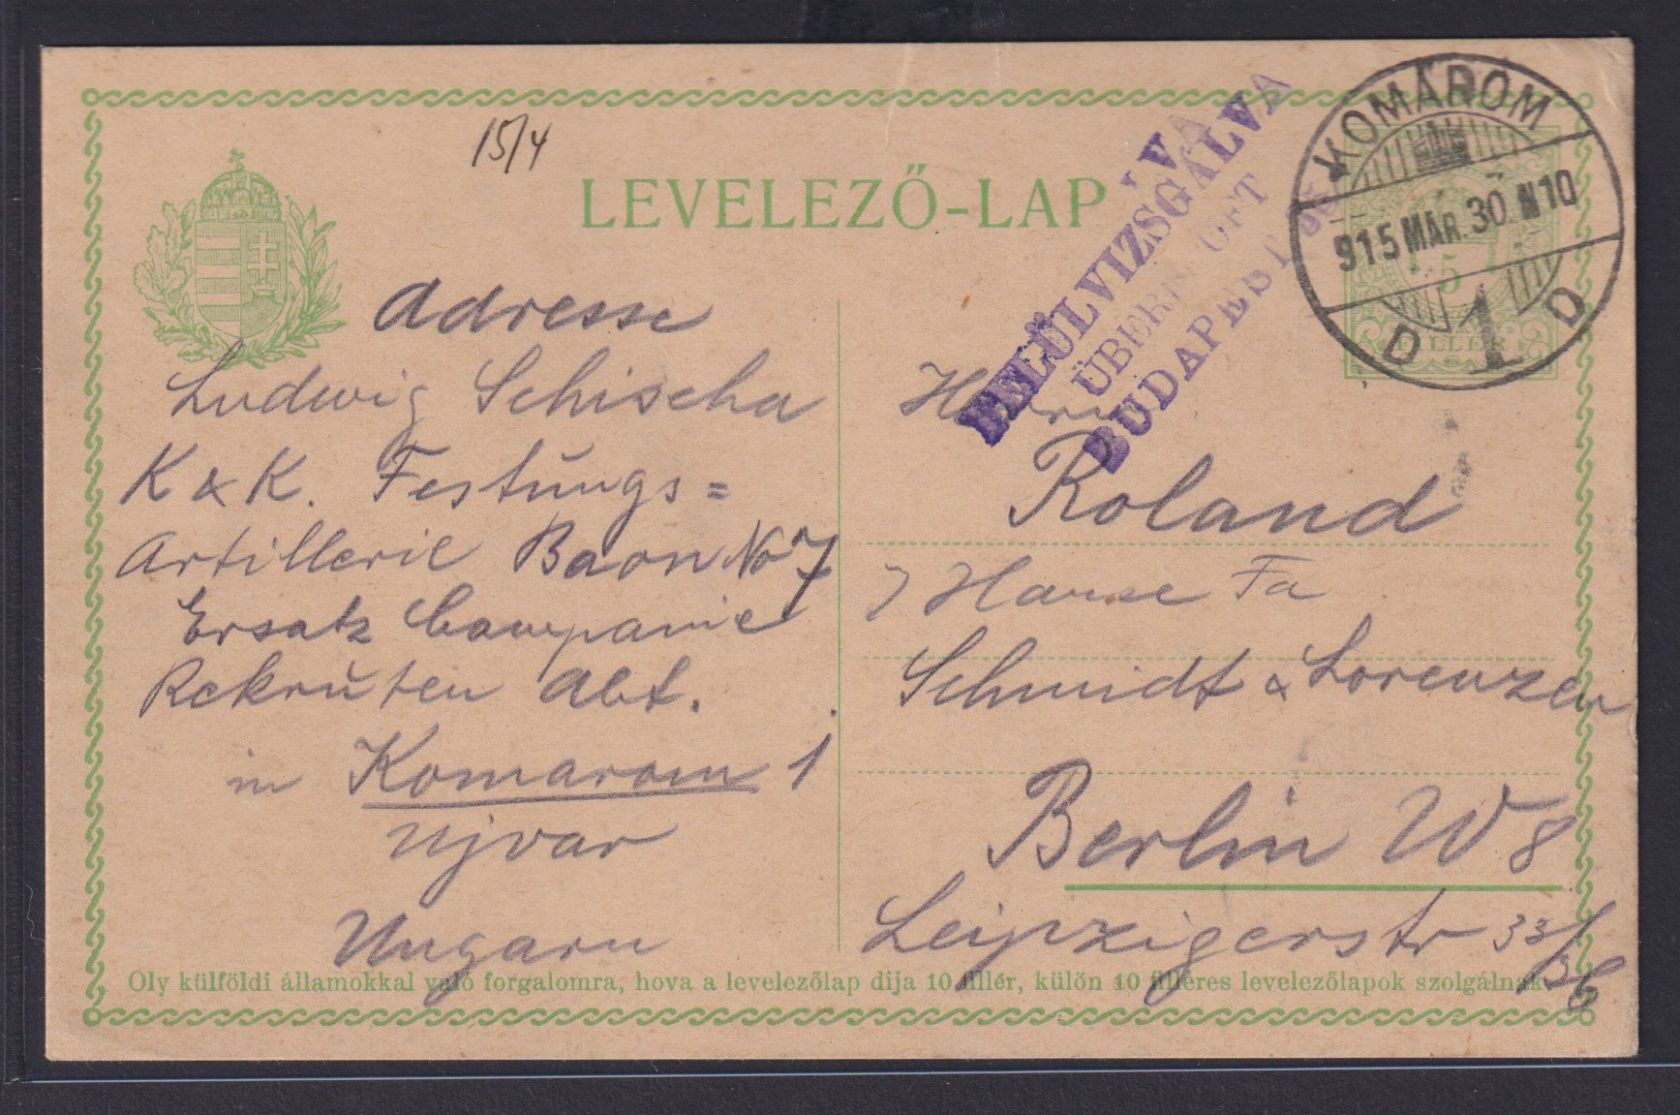 15/4
LEVELEZŐ-LAP
FELÜLVIZSGÁLVA
BUDAPEST
KOMÁROM
915 MÁR. 30. N 10
D 1 D
5
FILLÉR
Adresse
Ludwig Schischa
K & K. Festungs=
Artillerie Baon No 7
Ersatz Companie
Rekruten Abt.
in Komarom 1
Ujvar
Ungarn
Herrn
Roland
Hause Fa
Schmidt & Lorenzen
Berlin W 8
Leipzigerstr 33/36
Oly külföldi államokkal való forgalomra, hova a levelezőlap dija 10 fillér, külön 10 filléres levelezőlapok szolgálnak.